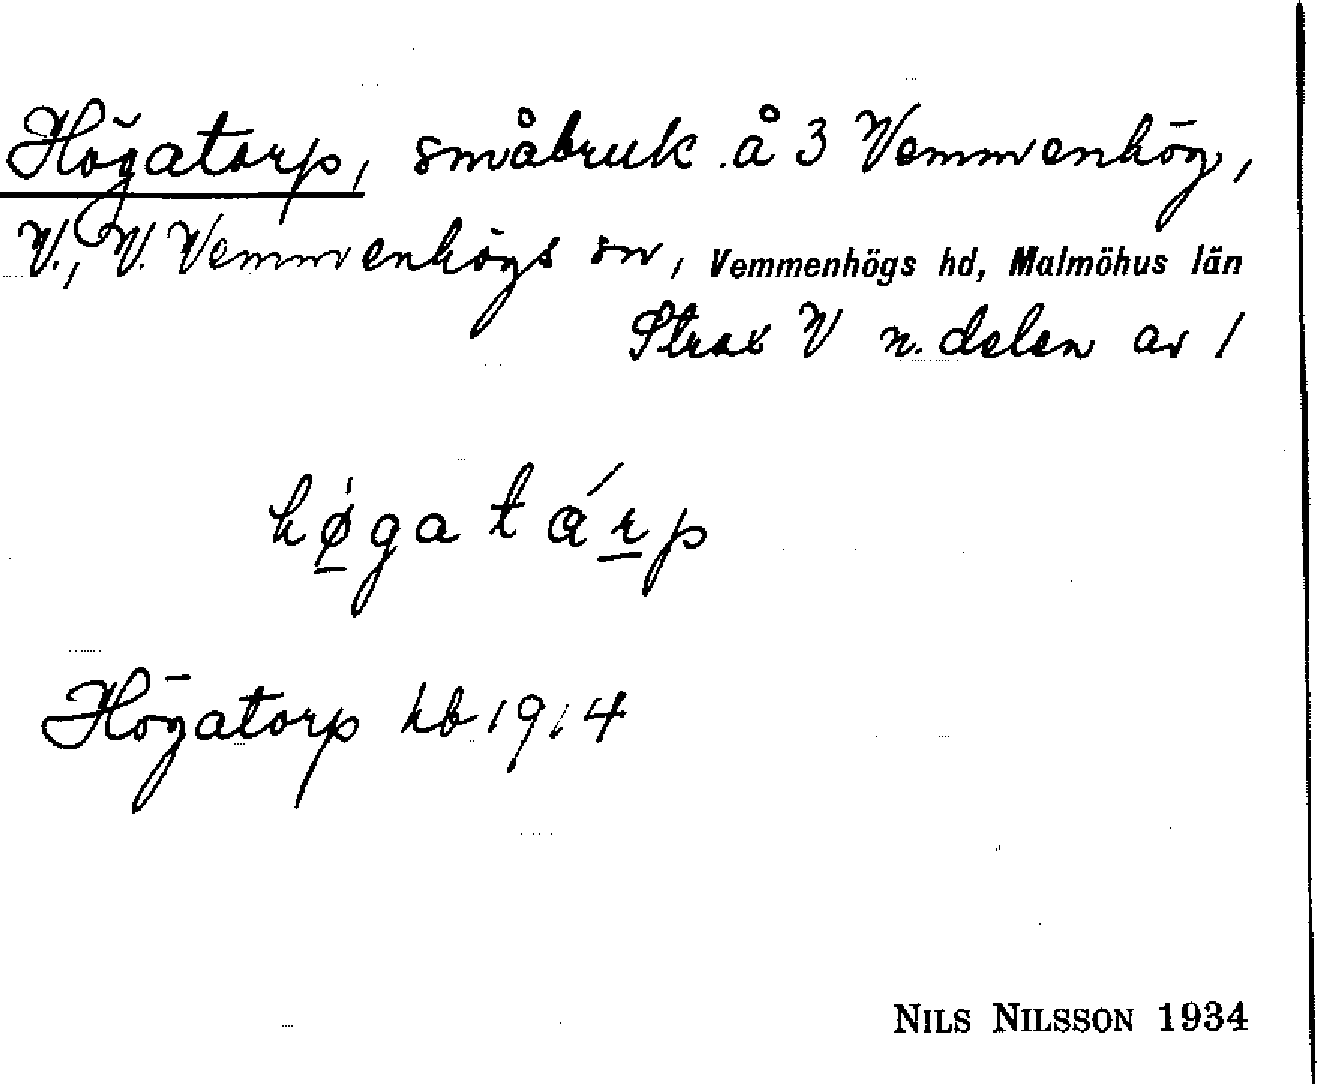 Högatorp, småbruk å 3 Vemmenhög,
V., V. Vemmenhögs sn, Vemmenhögs hd, Malmöhus län
Strax V n. delen av 1
hø̀gatárp
Högatorp hb 1914
NILS NILSSON 1934